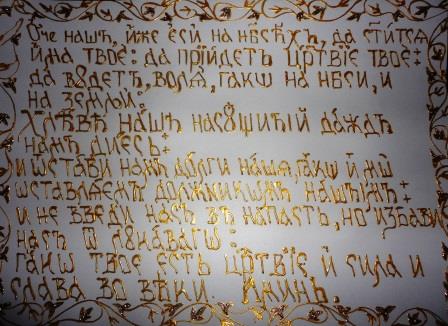 Оче нашъ йже еси на нбсѣхъ, да ст҃итсѧ
има твое: да прїйдетъ цр҃твїе твое:
да бꙋдетъ, волѧ̀, ꙗкѡ на нбси, и
на земли̑.
Хлѣбъ нашъ насꙋщный даждь
намъ днесь,+
и ѡстави намъ долги нашѧ, ꙗкѡ й мы
ѡставлѧемъ должникѡмъ нашымъ+
и не введи насъ въ напасть, но избави
насъ ѿ лꙋкавагѡ:
ꙗкѡ твое есть цр҃твїе й сила и
слава во вѣки Аминь.